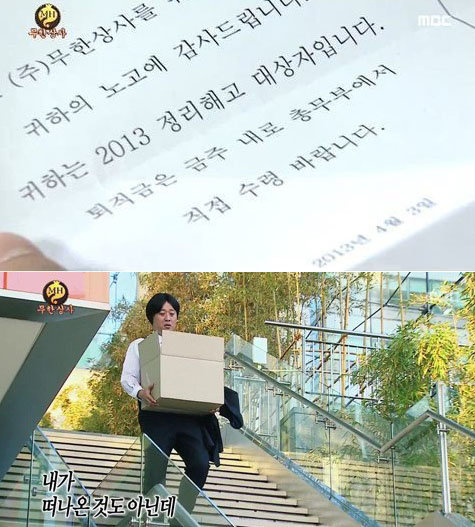 MH
무한상사
MBC
(주)무한상사를
귀하의 노고에 감사드립니다.
귀하는 2013 정리해고 대상자입니다.
퇴직금은 금주 내로 총무부에서
직접 수령 바랍니다.
2013년 4월 3일
MH
무한상사
내가
떠나온 것도 아닌데